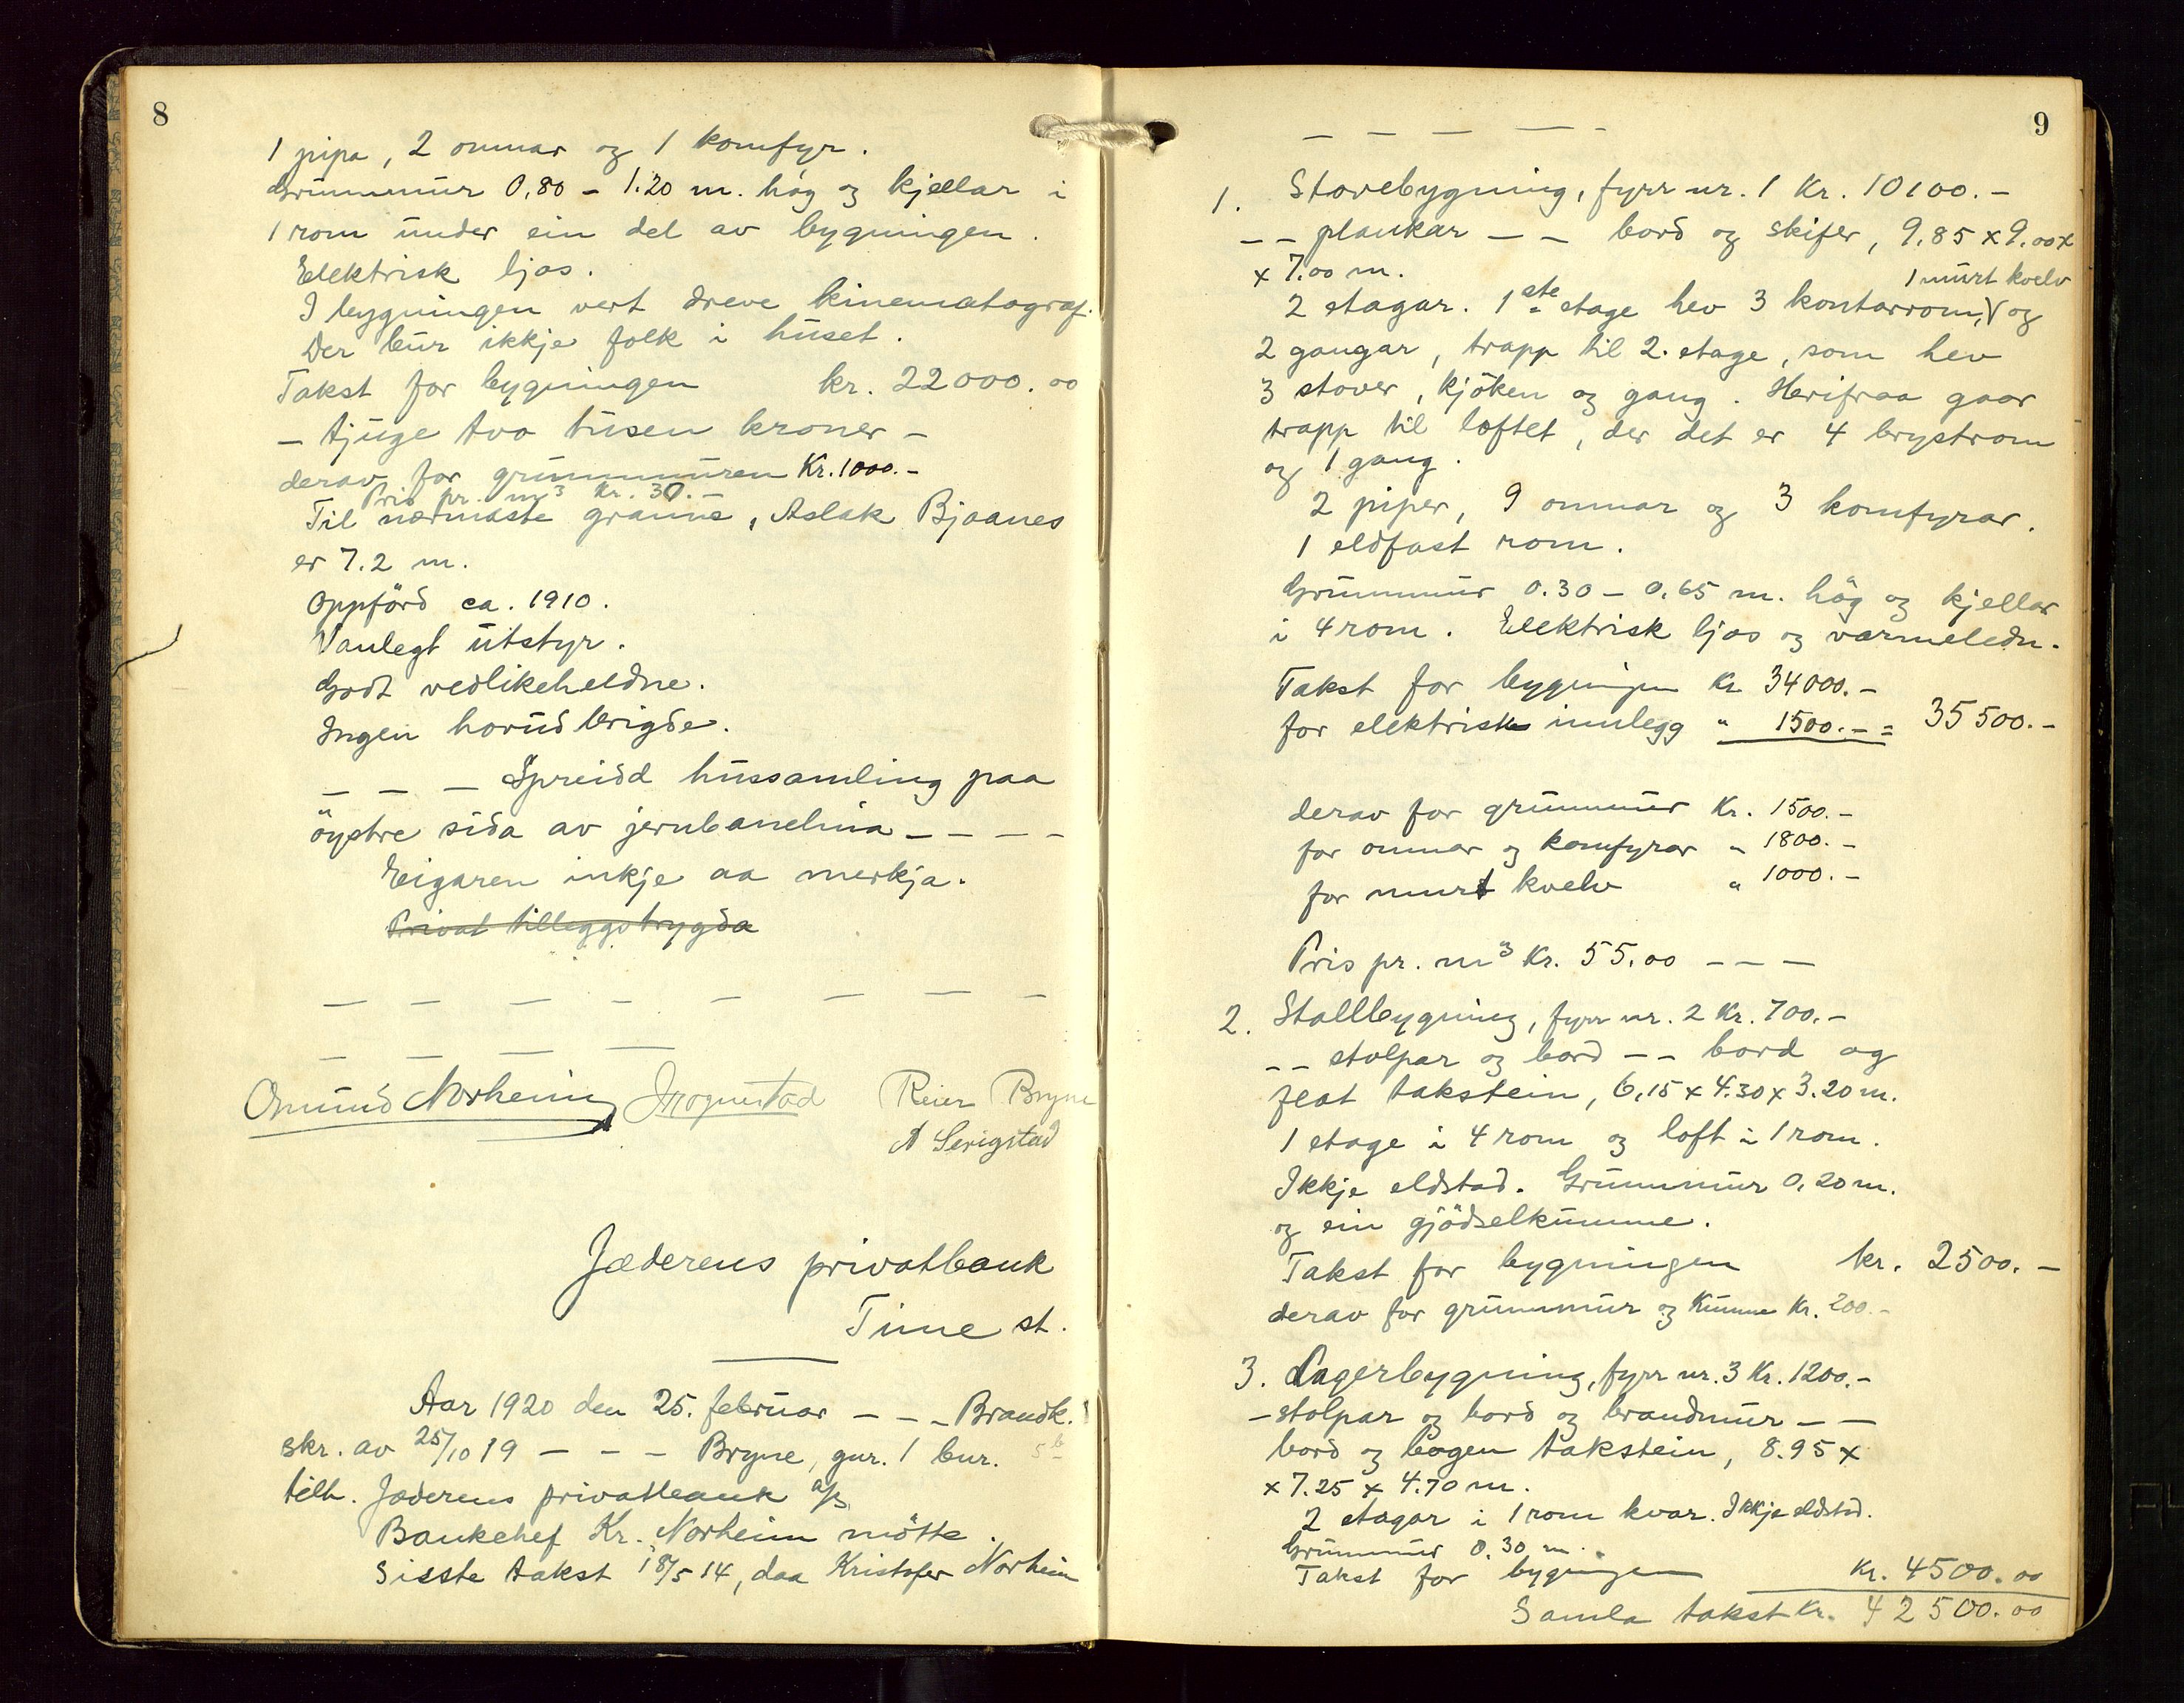 8
1 pipa, 2 omnar og 1 komfyr.
Grunnmur 0,80 – 1.20 m. høg og kjellar i
1 rom under ein del av bygningen.
Elektrisk ljos.
I bygningen vert dreve kinematograf.
Der bur ikkje folk i huset.
Takst for bygningen kr. 22000.00
– tjuge tvo tusen kroner –
derav for grunnmuren Kr. 1000.–
Pris pr. m³ kr. 30.–
Til nærmaste granne, Aslak Bjaanes
er 7.2 m.
Oppförd ca. 1910.
Vanlegt utstyr.
Godt vedlikeheldne.
Ingen horudbrigde.
– – – Spreidd hussamling paa
öystre sida av jernbanelina – – – –
Eigaren inkje aa merkja.
Privat tilleggstrygda
– – – – – – – –
– – – –
Omund Norheim Reier Bryne
A Serigstad
Jæderens privatbank
Time st.
Aar 1920 den 25. februar – – – Brandk.
skr. av 25/10 19 – – – Bryne, gnr. 1 bnr. 5
tilh. Jæderens privatbank A/S.
Bankchef Kr. Norheim mötte.
Sisste takst 18/5 14, daa Kristofer Norheim
9
– – – – –
1. Stovebygning, fyrr nr. 1 Kr. 10100.–
– – plankar – – bord og skifer, 9.85 x 9.00 x
x 7.00 m.
1 murt kvelv
2 etagar. 1ste etage hev 3 kontorrom, og
2 gangar, trapp til 2. etage, som hev
3 stover, kjöken og gang. Herifraa gaar
trapp til loftet, der det er 4 brystrom
og 1 gang.
2 piper, 9 omnar og 3 komfyrar.
1 eldfast rom.
Grunnmur 0.30 – 0.65 m. hög og kjellar
i 4 rom. Elektrisk ljos og varmeledn.
Takst for bygningen Kr 34000.–
for elektrisk innlegg " 1500.– = 35500.–
derav for grunnmur Kr. 1500.–
for omnar og komfyrar " 1800.–
for murt kvelv " 1000.–
Pris pr. m³ Kr. 55.00 – – –
2. Stallbygning, fyrr nr. 2 Kr. 700.–
– – stolpar og bord – – bord og
flat takstein, 6.15 x 4.30 x 3.20 m.
1 etage i 4 rom og loft i 1 rom.
Ikkje eldstad. Grunnmur 0.20 m.
og ein gjödselkumme.
Takst for bygningen kr. 2500.–
derav for grunnmur og Kumme Kr. 200.–
3. Lagerbygning, fyrr nr. 3 Kr. 1200.–
– stolpar og bord og brandmur – –
bord og bogen takstein, 8.95 x
x 7.25 x 4.70 m.
2 etagar i 1 rom kvar. Ikkje eldsted.
Grunnmur 0.30 m.
Takst for bygningen Kr. 4500.00
Samla takst Kr. 42500.00